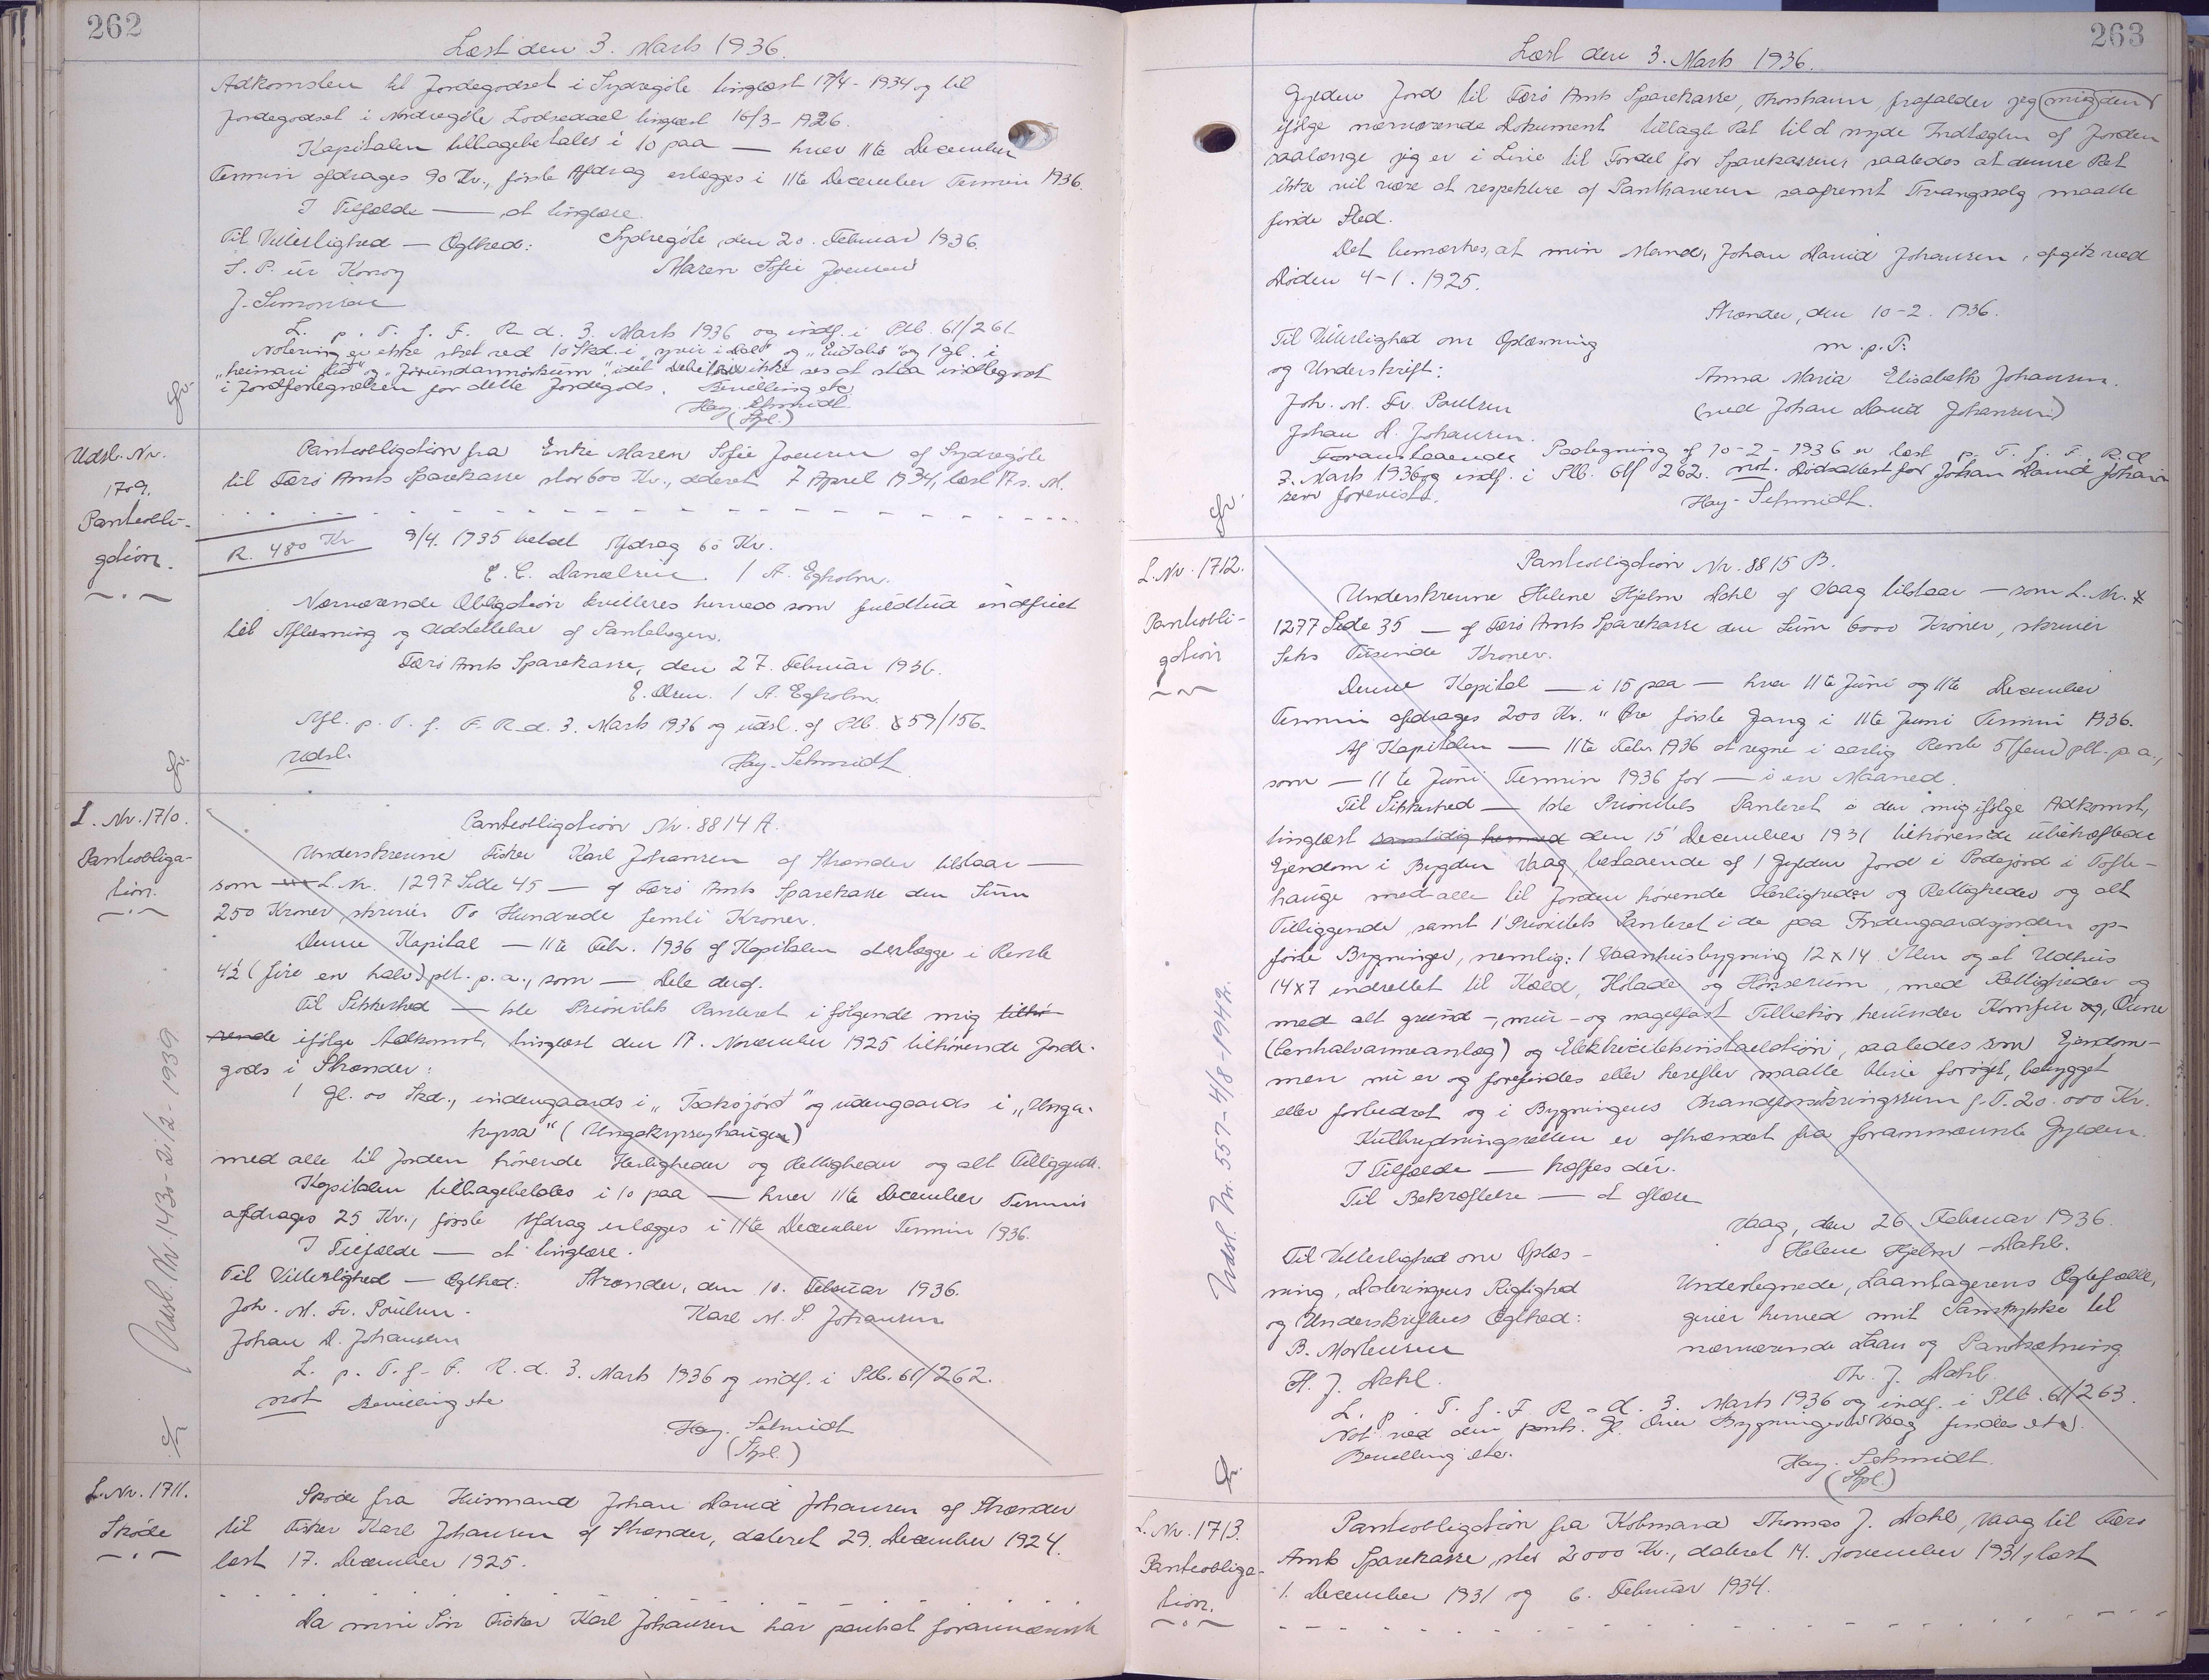 262
Læst den 3. Marts 1936.
Adkomsten til Jordegodset i Sydrogöte tinglæst 17/4 - 1934 og til
Jordegodset i Nordrogöte Lodsedael tinglæst 16/3 - 1926.
Kapitalen tilbagebetales i 10 paa — hver 11te December
Termin afdrages 90 Kr., förste Afdrag erlægges i 11te December Termin 1936.
I Tilfælde — at tinglæse.
Til Vitterlighed — Ægthed: Sydrogöte den 20. Februar 1936.
S. P. úr Konoy Maren Sofie Joensen
J. Simonsen
L. p. T. f. F. R. d. 3. Marts 1936 og indf. i Ptb. 61/261
Notering er ikke sket ved 10 Skd. i og 1 gl. i
ikke ses at staa indtegnet
i Jordfortegnelsen for dette Jordegods. Bevilling etc
Hay-Schmidt
(Spl.)
Udsl. Nr.
1709.
Panteobli-
gation.
Panteobligation fra Enke Maren Sofie Joensen af Sydrogöte
til Færö Amts Sparekasse stor 600 Kr., dateret 7 April 1934, læst 17 s. M.
R. 480 Kr 9/4. 1935 betalt Afdrag 60 Kr.
C. C. Danielsen. / A. Egholm.
Nærværende Obligation kvitteres herved som fuldtud indfriet
til Aflæsning og Udslettelse af Pantebogen.
Færö Amts Sparekasse, den 27. Februar 1936.
/ A. Egholm.
Afl. p. T. f. F. R. d. 3. Marts 1936 og udsl. af Ptb. 59/156.
Udsl. Hay-Schmidt
L. Nr. 1710.
Panteobliga-
tion.
Udsl. Nr. 1430 - 21/2 - 1939
Panteobligation Nr. 8814 A.
Underskrevne Fisker Karl Johansen af Strænder tilstaar —
som L. Nr. 1297 Side 45 — af Færö Amts Sparekasse den Sum
250 Kroner, skriver To Hundrede femti Kroner.
Denne Kapital — 11te Febr. 1936 af Kapitalen at erlægge i Rente
4½ (fire en halv) pct. p. a., som — Dele deraf.
Til Sikkerhed — 1ste Prioritets Panteret i følgende mig tilhö-
rende ifölge Adkomst, tinglæst den 17. November 1925 tilhörende Jorde-
gods i Strænder:
1 gl. 00 Skd., indengaards i og udengaards i „Unga-
kyrsa" (Ungakyrseyhaugen)
med alle til Jorden hörende Herligheder og Rettigheder og alt Tilliggende.
Kapitalen tilbagebetales i 10 paa — hver 11te December Termin
afdrages 25 Kr., förste Afdrag erlægges i 11te December Termin 1936.
I Tilfælde — at tinglæse.
Til Vitterlighed — Ægthed: Strænder, den 10. Februar 1936.
Joh. M. Fr. Poulsen. Karl M. S. Johansen
Johan D. Johansen
L. p. T. f. F. R. d. 3. Marts 1936 og indf. i Ptb. 61/262.
not Bevilling etc
Hay-Schmidt
(Spl.)
L. Nr. 1711.
Sköde
Sköde fra Husmand Johan David Johansen af Strænder
til Fisker Karl Johansen af Strænder, dateret 29. December 1924.
læst 17. December 1925.
Da min Sön Fisker Karl Johansen har pantsat forannævnte
263
Læst den 3. Marts 1936.
Gylden Jord til Færö Amts Sparekasse, Thorshavn, frafalder jeg mig den
ifölge nærværende Dokument tillagte Ret til at nyde Indtægten af Jorden
saalænge jeg er i Live til Fordel for Sparekassens saaledes at denne Ret
ikke vil være at respektere af Panthaveren saafremt Tvangssalg maatte
finde Sted.
Det bemærkes, at min Mand, Johan David Johansen, afgik ved
Döden 4-1. 1925.
Strænder, den 10-2. 1936.
Til Vitterlighed om Oplæsning m. p. P.
og Underskrift: Anna Maria Elisabeth Johansen.
Joh. M. Fr. Poulsen (ved Johan David Johansen)
Johan D. Johansen.
Foranstaaende Paategning af 10-2-1936 er læst p. T. f. F. R. d.
3. Marts 1936 og indf. i Ptb. 61/262. not. Dödsattest for Johan David Johan-
sen forevist. Hay-Schmidt.
L. Nr. 1712.
Panteobli-
gation
Udsl. Nr. 557 - 4/8 - 1942.
Panteobligation Nr. 8815 B.
Underskrevne Helene Hjelm Dahl af Vaag tilstaar — som L. Nr.
1277 Side 35 — af Færö Amts Sparekasse den Sum 6000 Kroner, skriver
Seks Tusinde Kroner.
Denne Kapital — i 15 paa — hver 11te Juni og 11te December
Termin afdrages 200 Kr. " Öre förste Gang i 11te Juni Termin 1936.
Af Kapitalen — 11te Febr. 1936 at regne i aarlig Rente 5 (fem) pct. p. a.,
som — 11te Juni Termin 1936 for — i en Maaned.
Til Sikkerhed — 1ste Prioritets Panteret i den mig ifölge Adkomst,
tinglæst samtidig hermed den 15' December 1931 tilhörende ubehæftede
Ejendom i Bygden Vaag, bestaaende af 1 Gylden Jord i Podejord i Tofte-
hauge med alle til Jorden hörende Herligheder og Rettigheder og alt
Tilliggende, samt 1' Prioritets Panteret i de paa Indengaardsjorden op-
förte Bygninger, nemlig: 1 Vaaningsbygning 12 x 14 Alen og et Udhus
14 x 7 indrettet til Kæld, Hölade og Hönserum, med Rettigheder og
med alt grund-, mur- og nagelfast Tilbehör, herunder Komfur og, Ovne
(Centralvarmeanlæg) og Elektricitetsinstallation, saaledes som Ejendom-
men nu er og forefindes eller herefter maatte blive foröget, bebygget
eller forbedret og i Bygningens Brandforsikringssum p. T. 20.000 Kr.
Kulbrydningsretten er afhændet fra forannævnte Gylden.
I Tilfælde — hæftes dér.
Til Bekræftelse — at aflæse
Vaag, den 26 Februar 1936.
Til Vitterlighed om Oplæs- Helene Hjelm-Dahl.
ning, Dateringens Rigtighed Undertegnede, Laantagerens Ægtefælle,
og Underskriftens Ægthed: giver herved mit Samtykke til
B. Mortensen nærværende Laan og Pantsætning
H. J. Dahl. Th. J. Dahl.
L. p. T. f. F. R. d. 3. Marts 1936 og indf. i Ptb. 61/263.
Not ved den pants. gl. Over Bygningerne i Vaag findes etc.
Bevilling etc.
Hay-Schmidt.
(Spl.)
L. Nr. 1713.
Panteobliga-
tion.
Panteobligation fra Köbmand Thomas J. Dahl, Vaag til Færö
Amts Sparekasse, stor 2000 Kr., dateret 14. November 1931, læst
1. December 1931 og 6. Februar 1934.